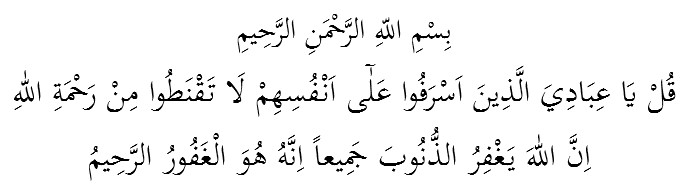 بِسْمِ اللّٰهِ الرَّحْمٰنِ الرَّحِيمِ
قُلْ يَا عِبَادِيَ الَّذِينَ اَسْرَفُوا عَلٰٓى اَنْفُسِهِمْ لَا تَقْنَطُوا مِنْ رَحْمَةِ اللّٰهِ
اِنَّ اللّٰهَ يَغْفِرُ الذُّنُوبَ جَمِيعاً اِنَّهُ هُوَ الْغَفُورُ الرَّحِيمُ